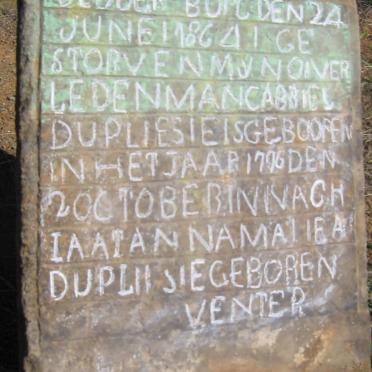 BUIGDEN 24
JUNEI 1864 I GE
STORVEN MYN OVER
LEDENMANCABRIEL
DUPLIESIEISGEBOOREN
IN HET JAAR 1796 DEN
2OCTOBERINNACH
IAATANNAMATIEA
DUPLII SIEGEBOREN
VENTER